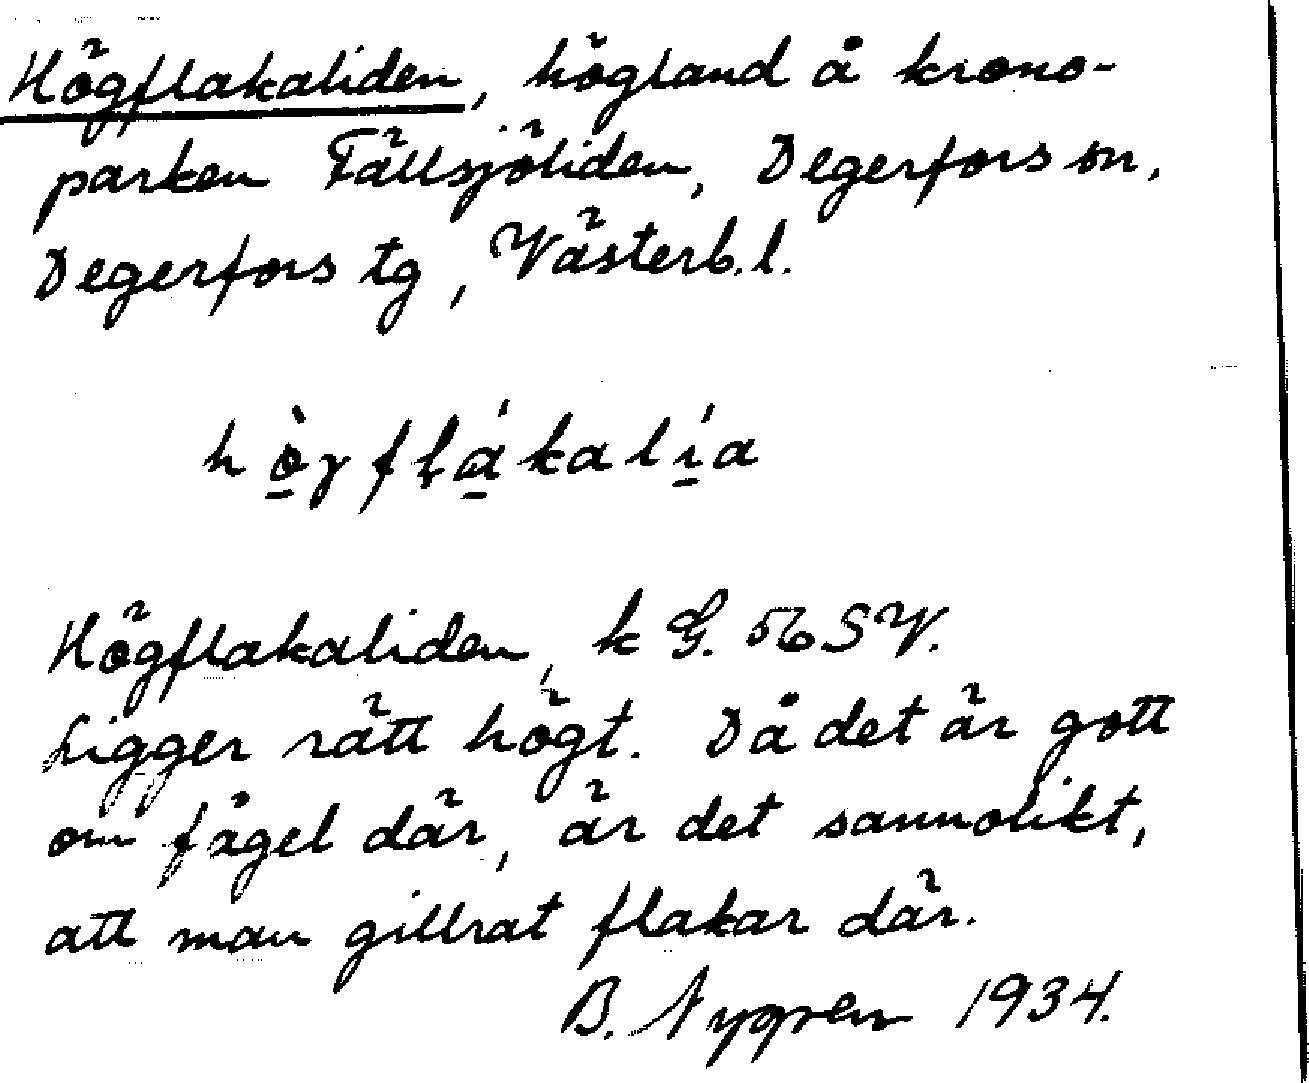 Högflakaliden, högland å krono-
parken Fällsjöliden, Degerfors sn,
Degerfors tg, Västerb. l.
hö̀gflákalía
Högflakaliden, k G. 56 SV.
Ligger rätt högt. Då det är gott
om fågel där, är det sannolikt,
att man gillrat flakar där.
B. Nygren 1934.